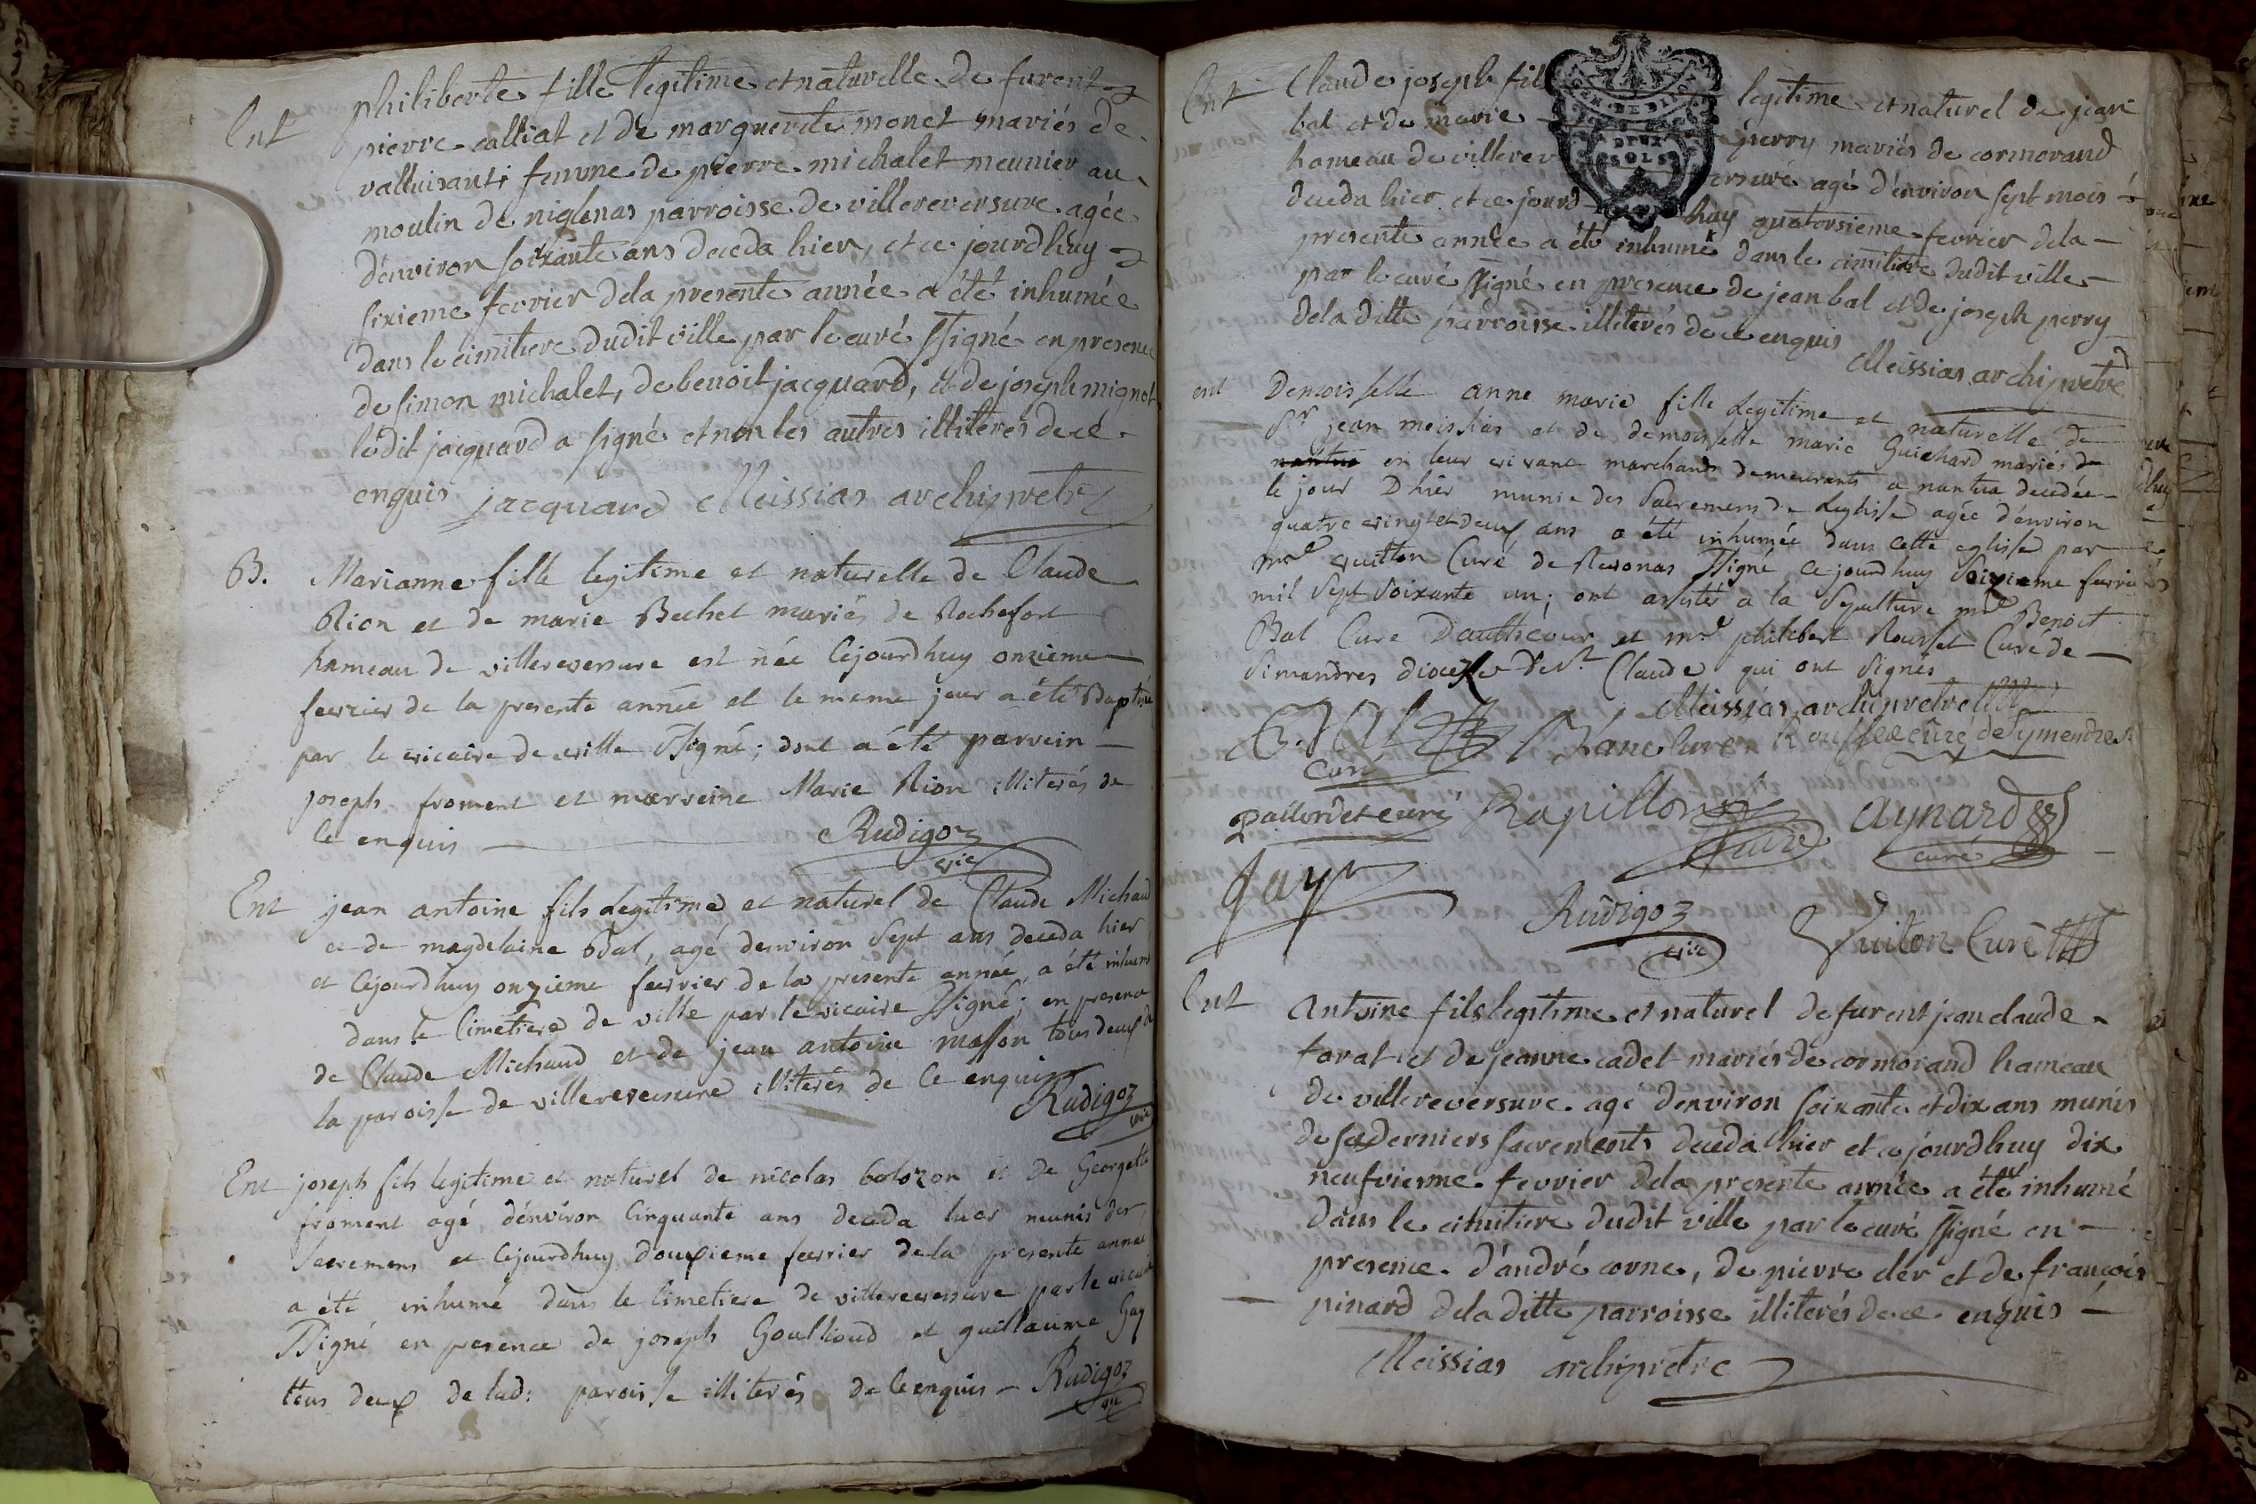 Ent philiberte fille legitime et naturelle de furent
pierre calliat et de marguerite monet mariés de
valluisant; femme de pierre michalet meunier au
moulin de niglenas parroisse de villereversure agée
d'environ soixante ans deceda hier, et ce jourdhuy
sixieme fevrier dela presente année a été inhumée
dans le cimitiere dudit ville par le curé ssigné en presence
de simon michalet, de benoit jacquard, et de joseph mignot
ledit jacquard a signé et non les autres illiterés de ce
enquis jacquard Meissias archipretre
B. Marianne fille legitime et naturelle de Claude
Rion et de marie Bechet mariés de Rochefort
hameau de villereversure est née Cejourdhuy onzieme
fevrier de la presente année et le meme jour a été Baptisée
par le vicaire de ville ssigné; dont a été parrein
joseph froment et marreine Marie Rion illiterés de
ce enquis Rudigoz
vic
Ent jean antoine fils legitime et naturel de Claude Michaud
et de magdelaine Bal, agé denviron sept ans deceda hier
et Cejourdhuy onzieme fevrier de la presente année, a été inhumé
dans le Cimetiere de ville par le vicaire ssigné; en presence
de Claude Michaud et de jean antoine masson tous deux de
la paroisse de villereversure illiterés de ce enquis
Rudigoz
vic
Ent joseph fils legitime et naturel de nicolas bolozon et de Georgette
froment agé d'environ Cinquante ans deceda hier munis des
sacremens et Cejourdhuy douzieme fevrier dela presente année
a été inhumé dans le Cimetiere de villereversure par le vicaire
ssigné en presence de joseph Goullioud et guillaume Gay
tous deux de lad: paroisse illiterés de ce enquis Rudigoz
vic
Ent Claude joseph fils legitime et naturel de jean
bal et de marie perry mariés de cormorand
hameau de villereversure agé d'environ sept mois
deceda hier et ce jourdhuy quatorsieme fevrier dela
presente année a été inhumé dans le cimitiere dudit ville
par le curé ssigné en presence de jean bal et de joseph perry
dela ditte parroisse illiterés de ce enquis
Meissias archipretre
ent Demoiselle anne marie fille legitime et naturelle de
sr jean meissias et de demoiselle marie Guichard mariés de
nantua en leur vivant marchands demeurants a nantua decedée
le jour D'hier munie des sacremens de leglise agée d'environ
quatre vingt et deux ans a été inhumée dans cette eglise par
mre vuiton Curé de Revonas ssigné Ce jourdhuy seizieme fevrier
mil sept soixante un; ont assistés a la sepulture mre Benoit
Bal Curé D'authicour et mre philibert Rousset Curé de
simandres diocese de St Claude qui ont signés
Meissias archipretre
B. Bal
curé
curé Rousset curé de Symandres
pallordet curé Rapillon
curé
aynard
curé
Gay
Rudigoz
vic
Vuiton Curé
Ent Antoine fils legitime et naturel de furent jean claude
tavat et de jeanne cadet mariés de cormorand hameau
de villereversure agé d'environ soixante et dix ans munis
de ses derniers sacrements deceda hier et ce jourdhuy dix
neufvieme fevrier dela presente année a été inhumé
dans le cimitiere dudit ville par le curé ssigné en
presence d'andré corne, de pierre dér et de françois
pinard dela ditte parroisse illiterés de ce enquis
Meissias archipretre